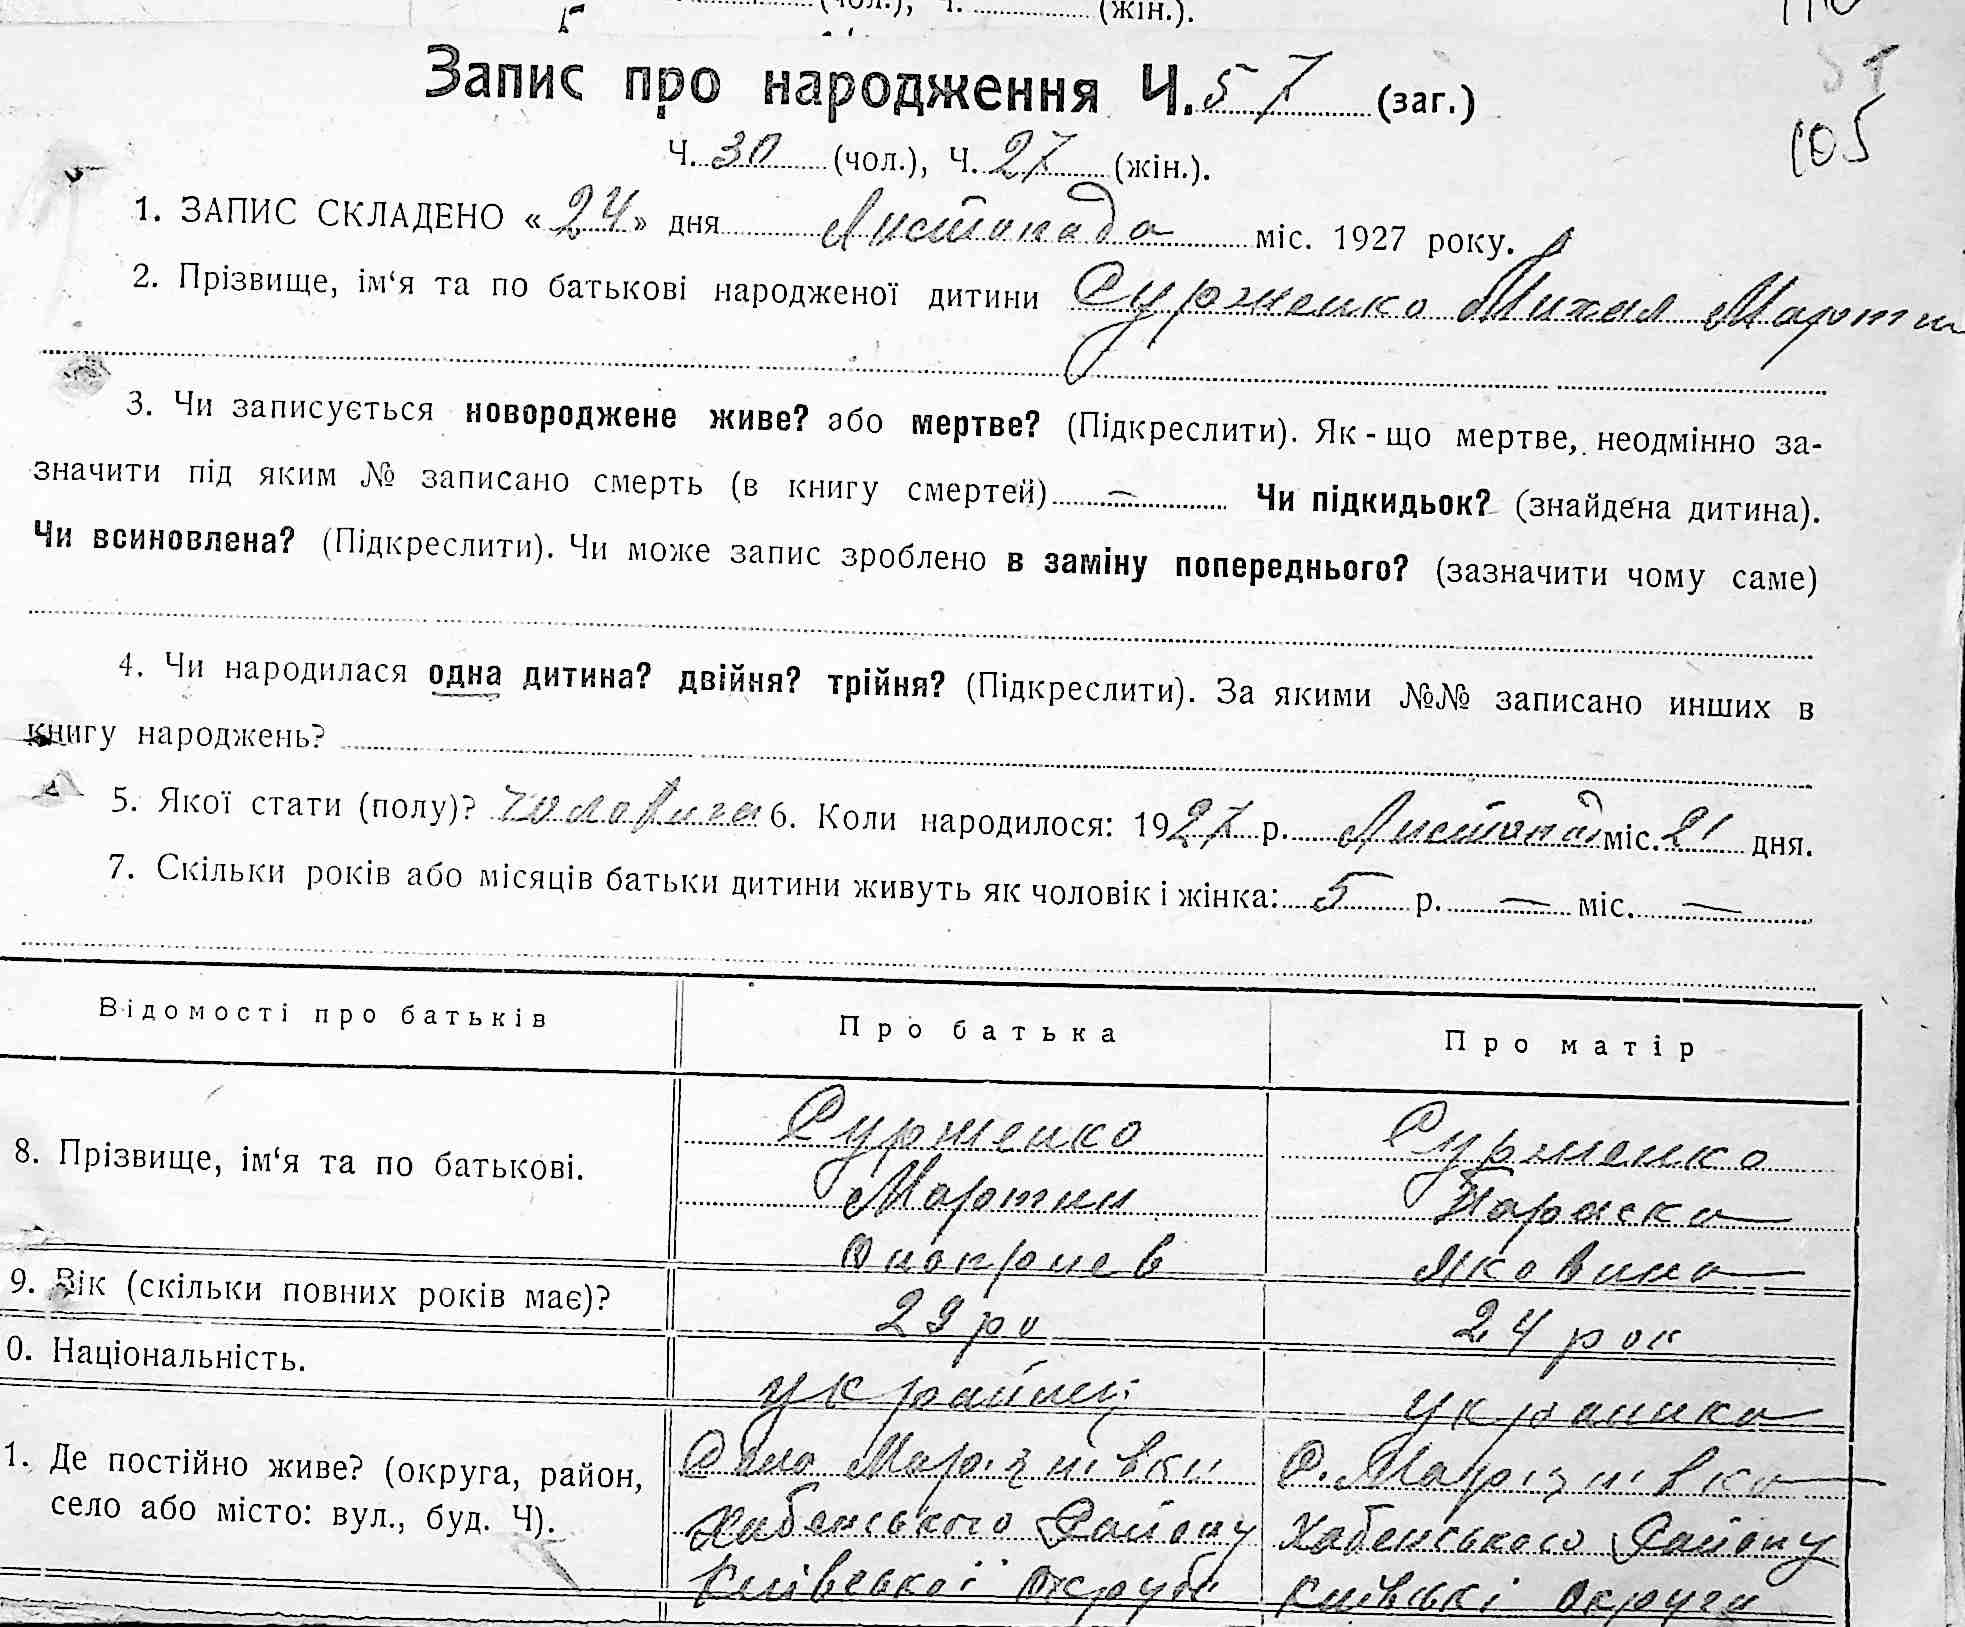 (чол.), Ч. (жін.).
Запис про народження Ч. 57 (заг.)
105
Ч. 30 (чол.), Ч. 27 (жін.).
1. ЗАПИС СКЛАДЕНО «24» дня Листопада міс. 1927 року.
2. Прізвище, ім‘я та по батькові народженої дитини Сурженко Михал Марти
3. Чи записується новороджене живе? або мертве? (Підкреслити). Як-що мертве, неодмінно за-
значити під яким № записано смерть (в книгу смертей) — Чи підкидьок? (знайдена дитина).
Чи всиновлена? (Підкреслити). Чи може запис зроблено в заміну попереднього? (зазначити чому саме)
4. Чи народилася одна дитина? двійня? трійня? (Підкреслити). За якими №№ записано инших в
книгу народжень?
5. Якої стати (полу)? чоловича 6. Коли народилося: 1927 р. Листопад міс. 21 дня.
7. Скільки років або місяців батьки дитини живуть як чоловік і жінка: 5 р. — міс. —
Відомості про батьків Про батька Про матір
8. Прізвище, ім‘я та по батькові. Сурженко Сурженко
Мартин Параска
Яковина
9. Вік (скільки повних років має)? 29 ро 24 рок
0. Національність. українец украинка
1. Де постійно живе? (округа, район, Село Мар'янівки С. Мар'янівка
село або місто: вул., буд. Ч). Хабенського Району Хабенського Району
Київської Округи Київські Округи